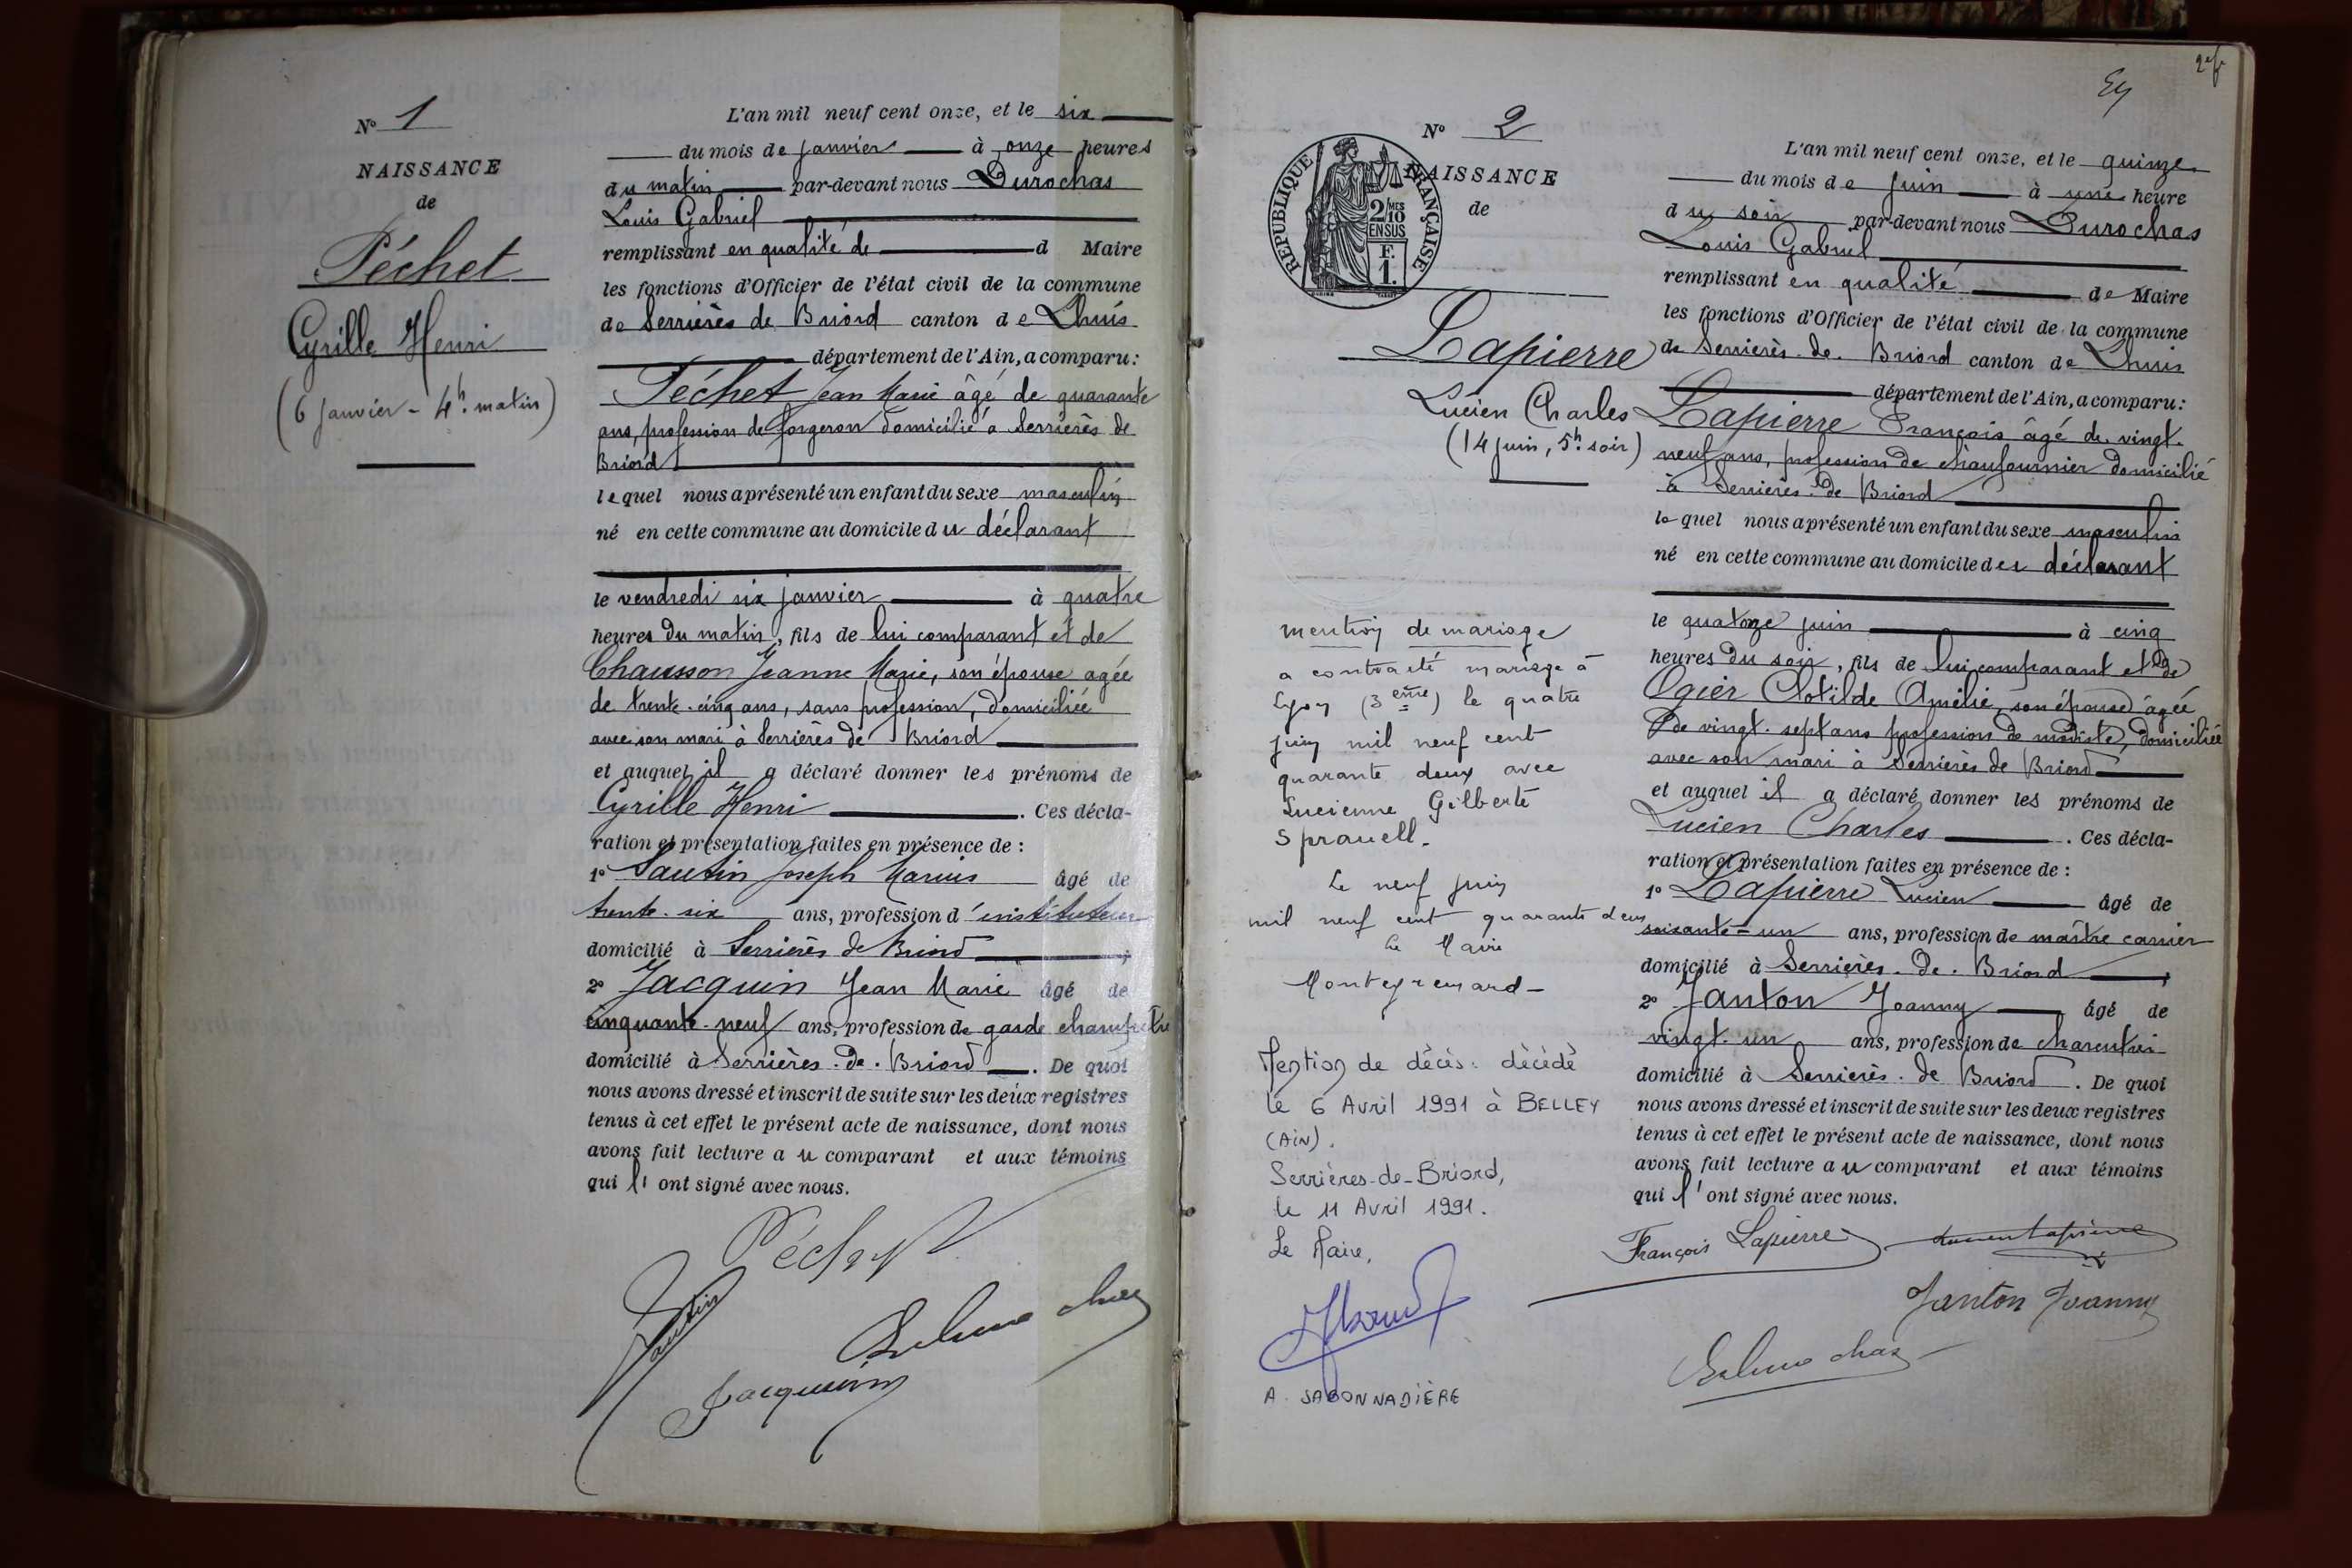 N° 1
NAISSANCE
de
Péchet
Cyrille Henri
(6 janvier - 4h. matin)
L'an mil neuf cent onze, et le six
du mois de janvier à onze heures
du matin par-devant nous Durochas
Louis Gabriel
remplissant en qualité de d Maire
les fonctions d'Officier de l'état civil de la commune
de Serrières de Briord canton de Lhuis
département de l'Ain, a comparu :
Péchet Jean Marie âgé de quarante
ans, profession de forgeron domicilié à Serrières de
Briord
lequel nous a présenté un enfant du sexe masculin
né en cette commune au domicile du déclarant
le vendredi six janvier à quatre
heures du matin, fils de lui comparant et de
Chausson Jeanne Marie, son épouse agée
de trente-cinq ans, sans profession, domiciliée
avec son mari à Serrières de Briord
et auquel il a déclaré donner les prénoms de
Cyrille Henri . Ces décla-
ration et présentation faites en présence de :
1° Sautin Joseph Marius âgé de
trente-six ans, profession d'instituteur
domicilié à Serrières de Briord ;
2° Jacquin Jean Marie âgé de
cinquante-neuf ans, profession de garde champêtre
domicilié à Serrières-de-Briord . De quoi
nous avons dressé et inscrit de suite sur les deux registres
tenus à cet effet le présent acte de naissance, dont nous
avons fait lecture au comparant et aux témoins
qui l'ont signé avec nous.
Péchet
Sautin
Jacquin
N° 2
NAISSANCE
de
RÉPUBLIQUE FRANÇAISE
2/10 MES
EN SUS
F.
1.
Lapierre
Lucien Charles
(14 juin, 5h. soir)
mention de mariage
a contracté mariage à
Lyon (3eme) le quatre
juin mil neuf cent
quarante deux avec
Lucienne Gilberte
Sprauell.
Le neuf juin
mil neuf cent quarante deux
Le Maire
Mention de décès : décédé
le 6 Avril 1991 à BELLEY
(AiN).
Serrières-de-Briord,
le 11 Avril 1991.
Le Maire,
A. SABONNADIÈRE
2e f
L'an mil neuf cent onze, et le quinze
du mois de juin à une heure
du soir par-devant nous Durochas
Louis Gabriel
remplissant en qualité de Maire
les fonctions d'Officier de l'état civil de la commune
de Serrières-de-Briord canton de Lhuis
département de l'Ain, a comparu :
Lapierre François âgé de vingt-
neuf ans, profession de chaufournier domicilié
à Serrières-de Briord
lequel nous a présenté un enfant du sexe masculin
né en cette commune au domicile du déclarant
le quatorze juin à cinq
heures du soir, fils de lui comparant et de
Ogier Clotilde Amélie, son épouse âgée
de vingt-sept ans profession de modiste, domiciliée
avec son mari à Serrières de Briord
et auquel il a déclaré donner les prénoms de
Lucien Charles . Ces décla-
ration et présentation faites en présence de :
1° Lapierre Lucien âgé de
soixante-un ans, profession de maître carrier
domicilié à Serrières-de-Briord ;
2° Janton Joanny âgé de
vingt-un ans, profession de charcutier
domicilié à Serrières-de Briord . De quoi
nous avons dressé et inscrit de suite sur les deux registres
tenus à cet effet le présent acte de naissance, dont nous
avons fait lecture au comparant et aux témoins
qui l'ont signé avec nous.
François Lapierre Lucien Lapierre
Janton Joanny